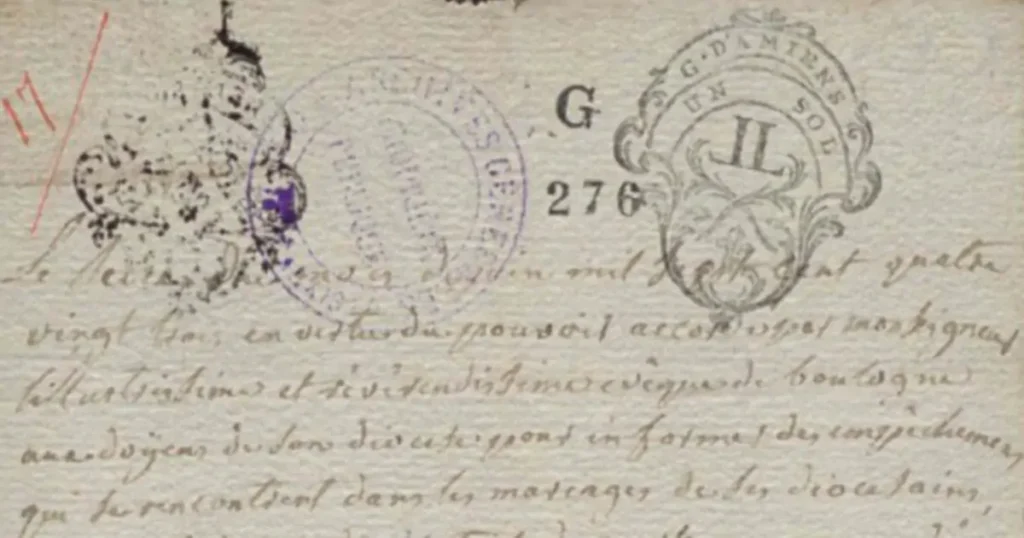 17
ARCHIVES GÉNÉ
G
276
G. D'AMIENS
UN SOL
Le du mois de juin mil sept cent quatre
vingt trois en vertu du pouvoir accordé par monseigneur
l'illustrissime et révérendissime evêque de boulogne
aux doyens de son diocese pour informer des empêchemens
qui se rencontrent dans les mariages de ses diocesains